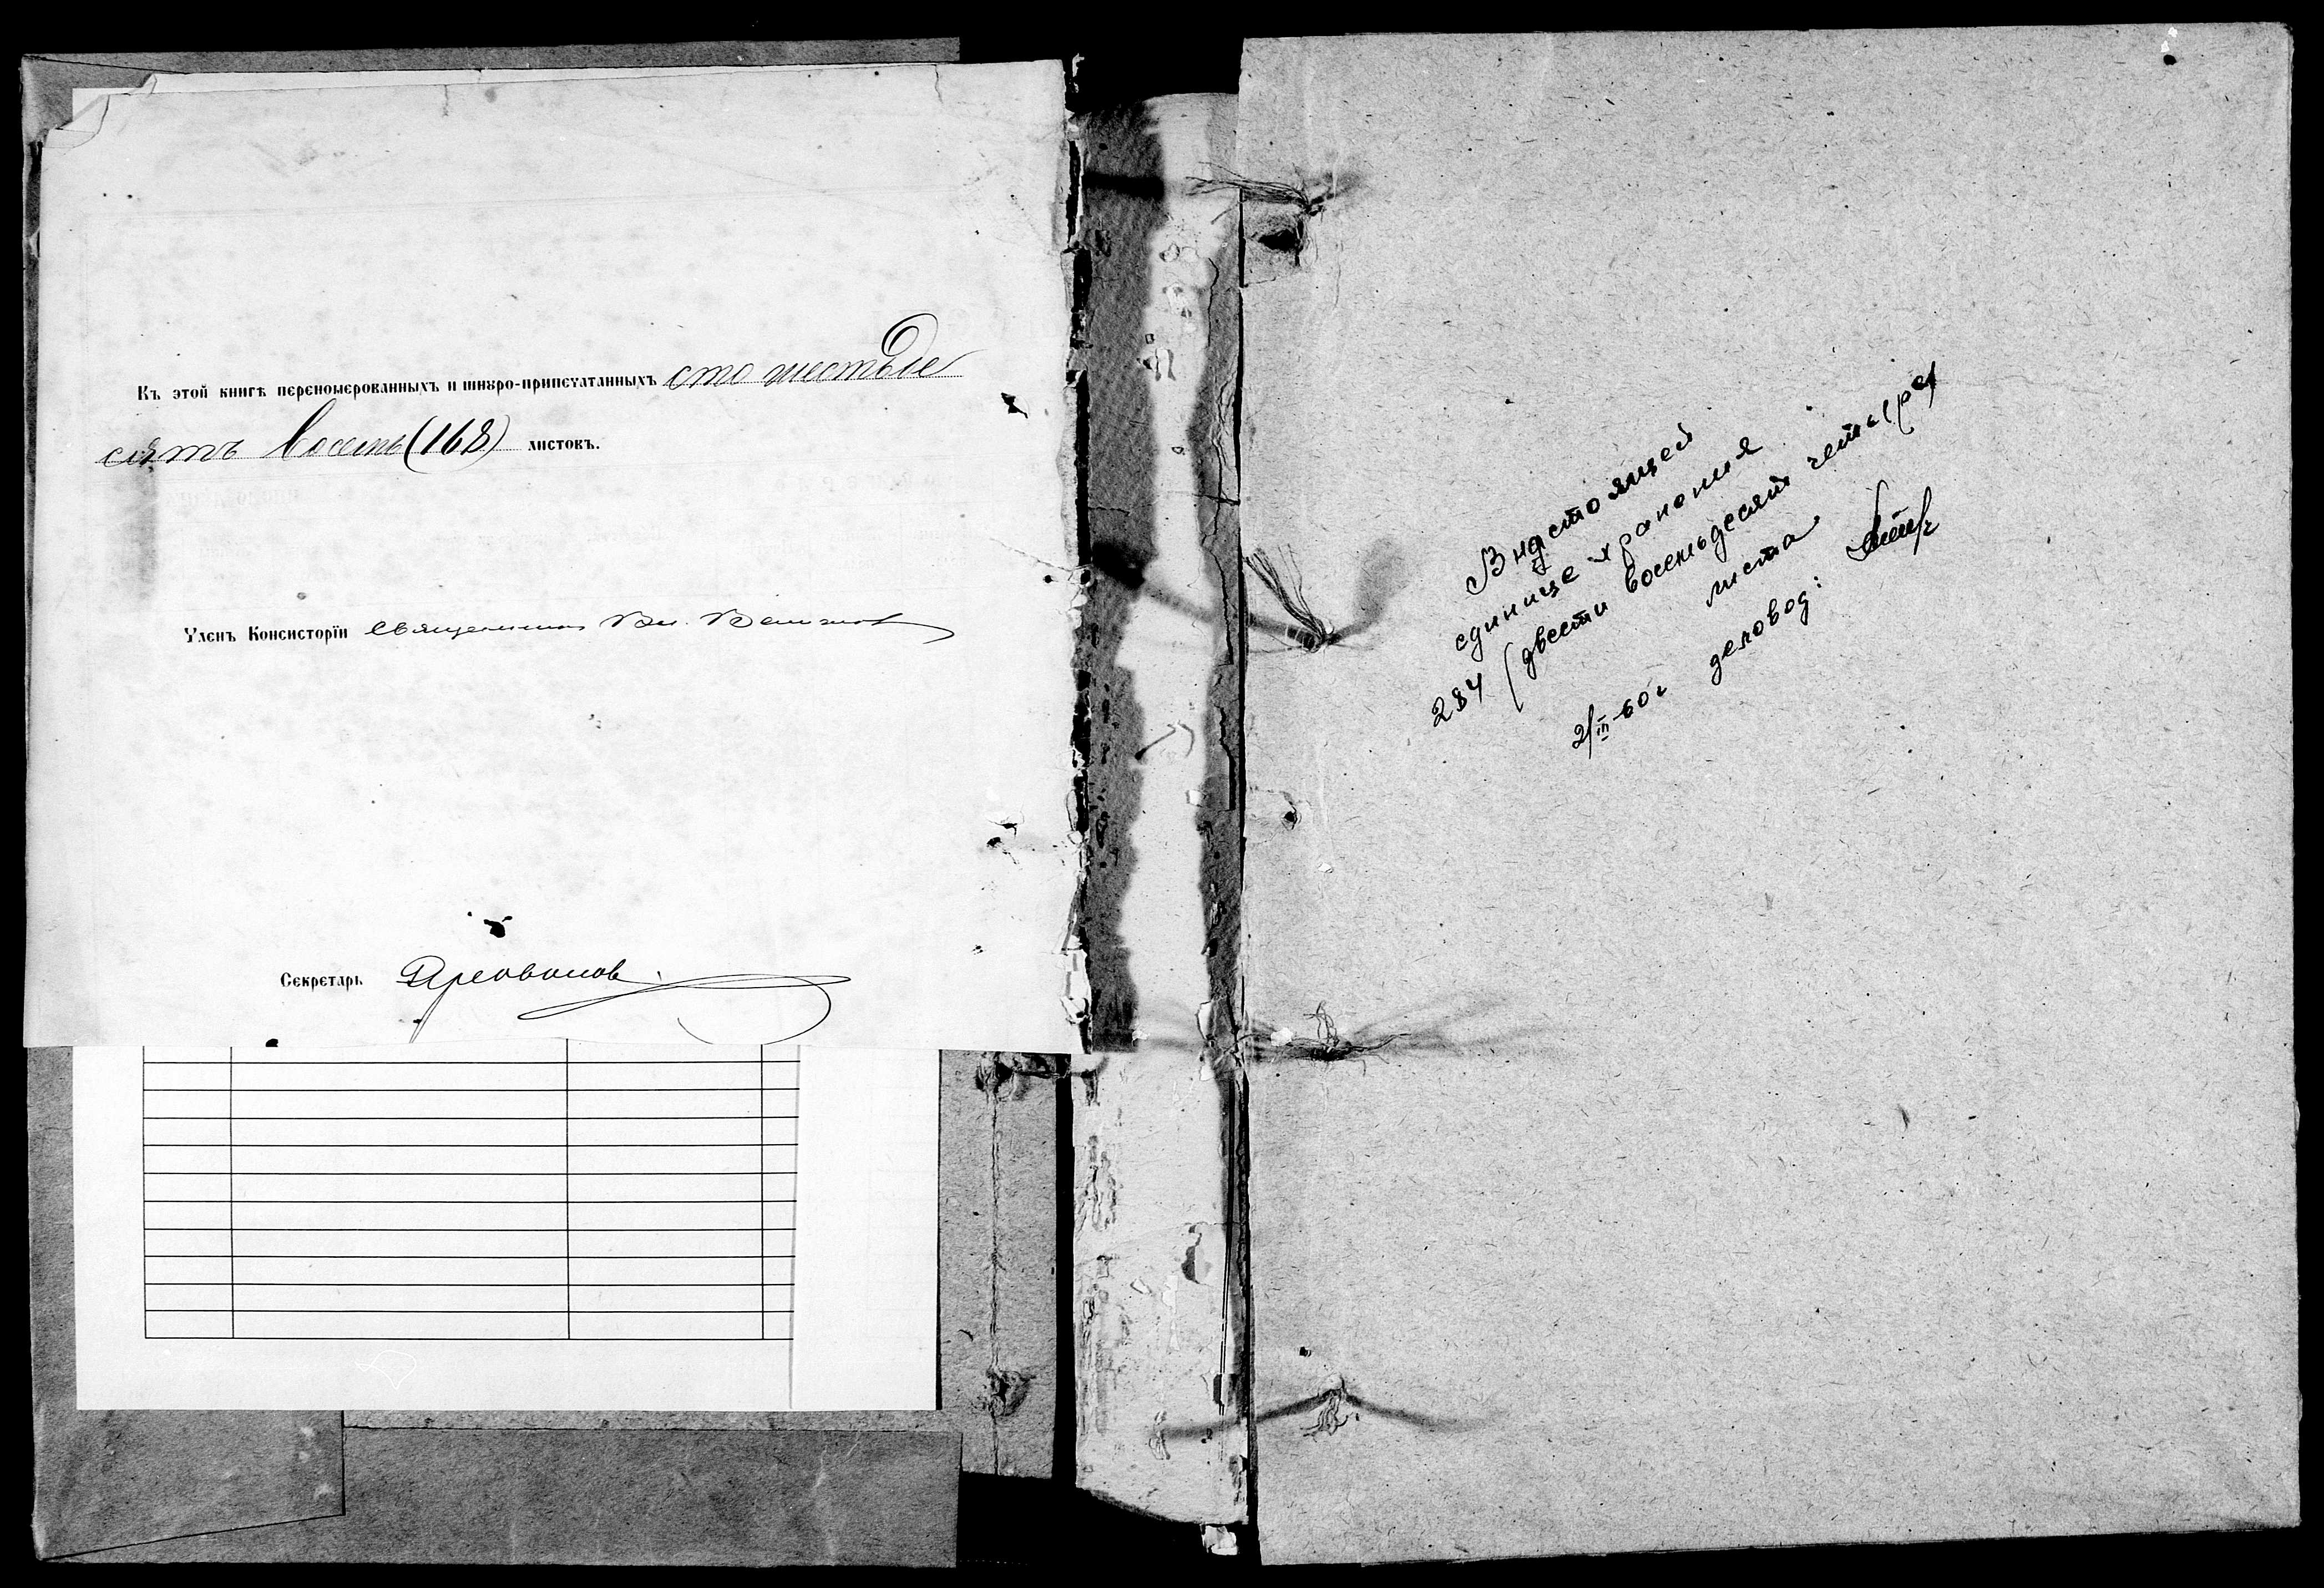 Къ этой книгѣ переномерованныхъ и шнуро-припечатанныхъ сто шестьде
сятъ восемь (168) листовъ.
Членъ Консисторіи Священникъ Вл.
Секретарь
В настоящей
единице хранения
284 (двести восемьдесят четы(ре)
листа
2/III-60г деловод: